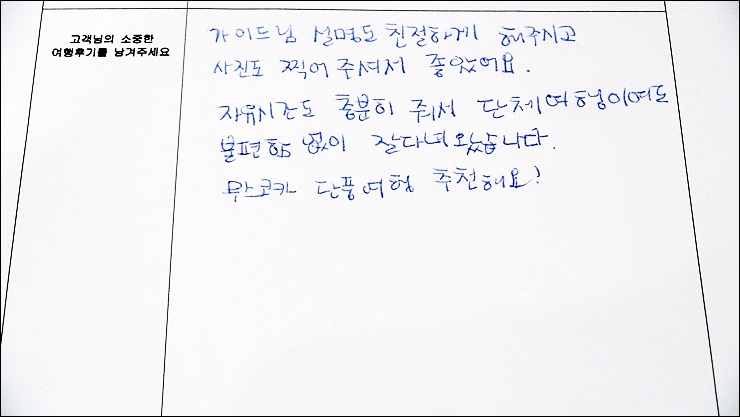 고객님의 소중한
여행후기를 남겨주세요
가이드님 설명도 친절하게 해주시고
사진도 찍어 주셔서 좋았어요.
자유시간도 충분히 줘서 단체여행이여도
불편함 없이 잘다녀왔습니다.
무스코카 단풍여행 추천해요!